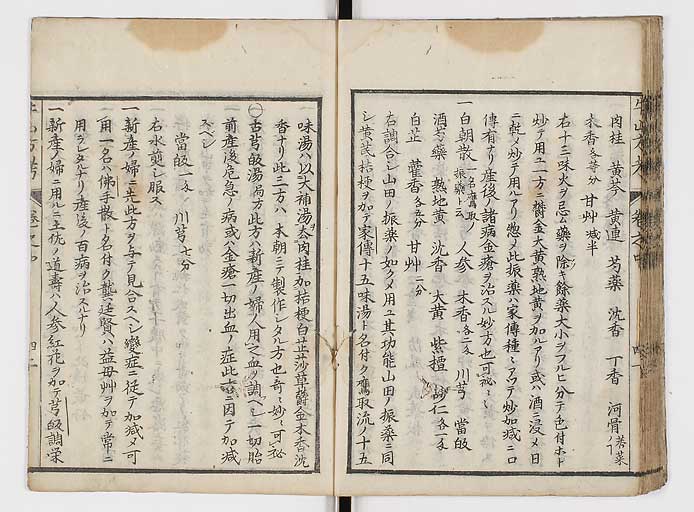 一 肉桂 黄芩 黄連 芍薬 沈香 丁香 河骨
木香各等分 甘艸減半
右十三味火ヲ忌ム薬ヲ除キ餘薬大小ヲフルヒ分テ色付ホト
炒テ用ユ一方ニ欝金大黄熟地黄ヲ加ルアリ或ハ酒ニ浸メ日
ニ乾メ炒テ用ルアリ
傳有ナリ産後ノ諸病金瘡ヲ治スル妙方也可秘々々
一 白朝散 人参 木香各二匁 川芎 當皈
酒芍薬 熟地黄 沈香 大黄 紫檀 砂仁各一匁
白芷 藿香各五分 甘艸二分
右調合シ山田ノ振薬ノ如クメ用ユ其功能山田ノ振薬ニ同
シ黄芪桔梗ヲ加テ家傳十五味湯ト名付ク鷹取流ノ十五
一味湯ハ以大補湯去肉桂加桔梗白芷莎草欝金木香沈
香ナリ此二方ハ本朝ニテ製作シタル方也奇々妙々可秘
古芎皈湯局方此方ハ新産ノ婦人用之血ヲ調ヘシ一切胎
前産後危急ノ病或ハ金瘡一切出血ノ症此方ニ因テ加減
スベシ
當皈一匁 川芎七分
右水煎シ服ス
一 新産ノ婦ニ先此方ヲ与テ見合スヘシ變症ニ従テ加減メ可
一 用一名ハ佛手散ト名付ク龔廷賢ハ益母艸ヲ加テ常ニ
用ヲレタルナリ産後ノ百病ヲ治スルナリ
一 新産ノ婦ニ用ルニ土佐ノ道壽ハ人参紅花ヲ加テ芎皈調栄